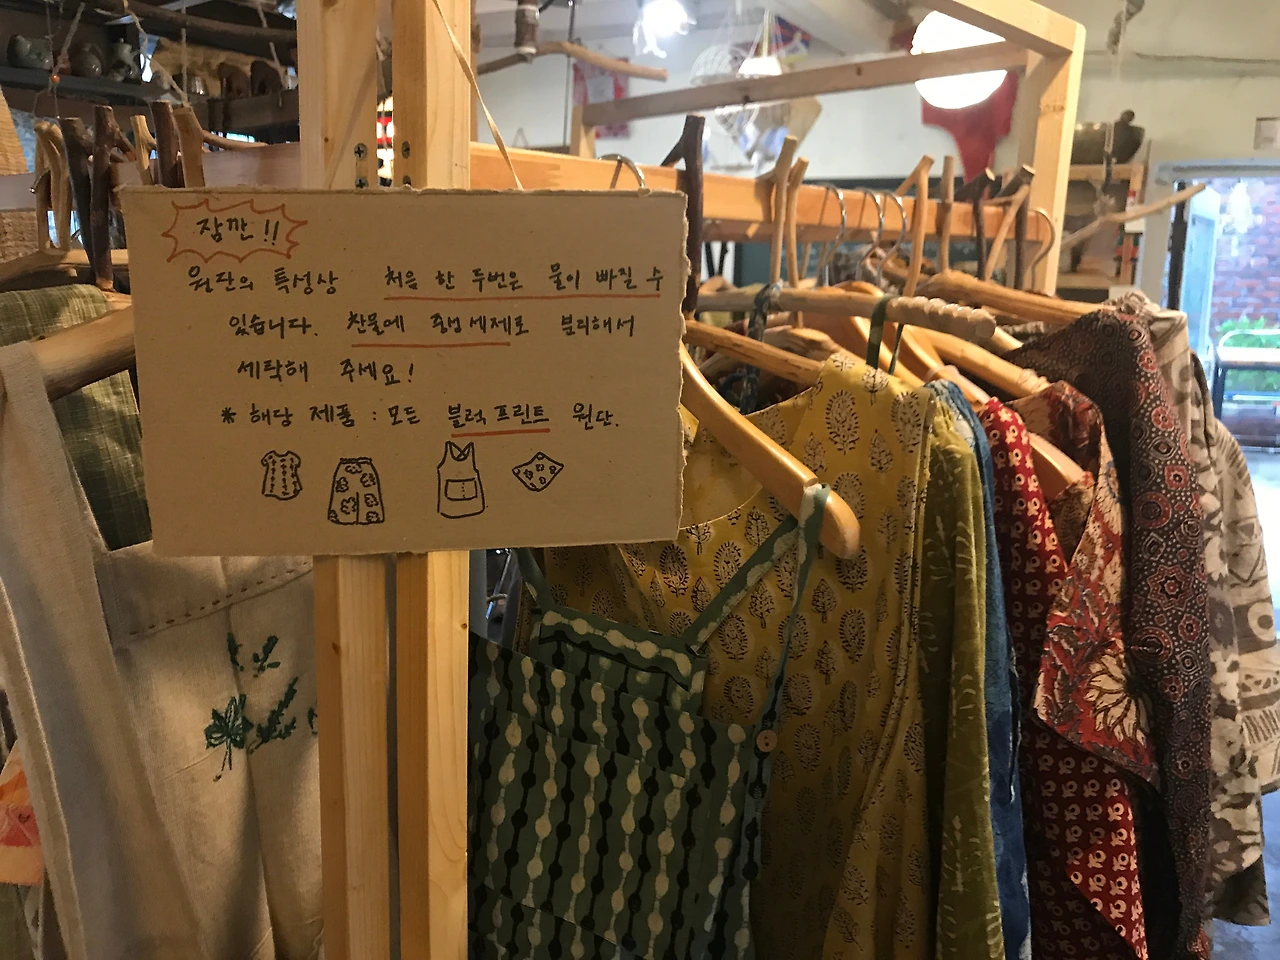 잠깐!!
원단의 특성상 처음 한 두번은 물이 빠질 수
있습니다. 찬물에 중성세제로 분리해서
세탁해 주세요!
* 해당 제품 : 모든 블럭프린트 원단.